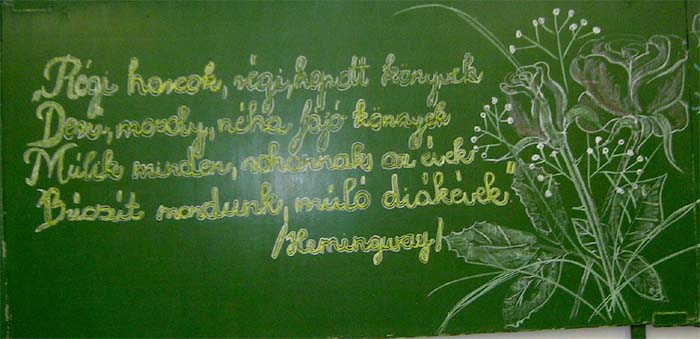 „Régi harcok, régi, kopott könyvek
Derű, mosoly, néha fájó könnyek
Múlik minden, rohannak az évek
Búcsút mondunk, múló diákévek."
/Hemingway/